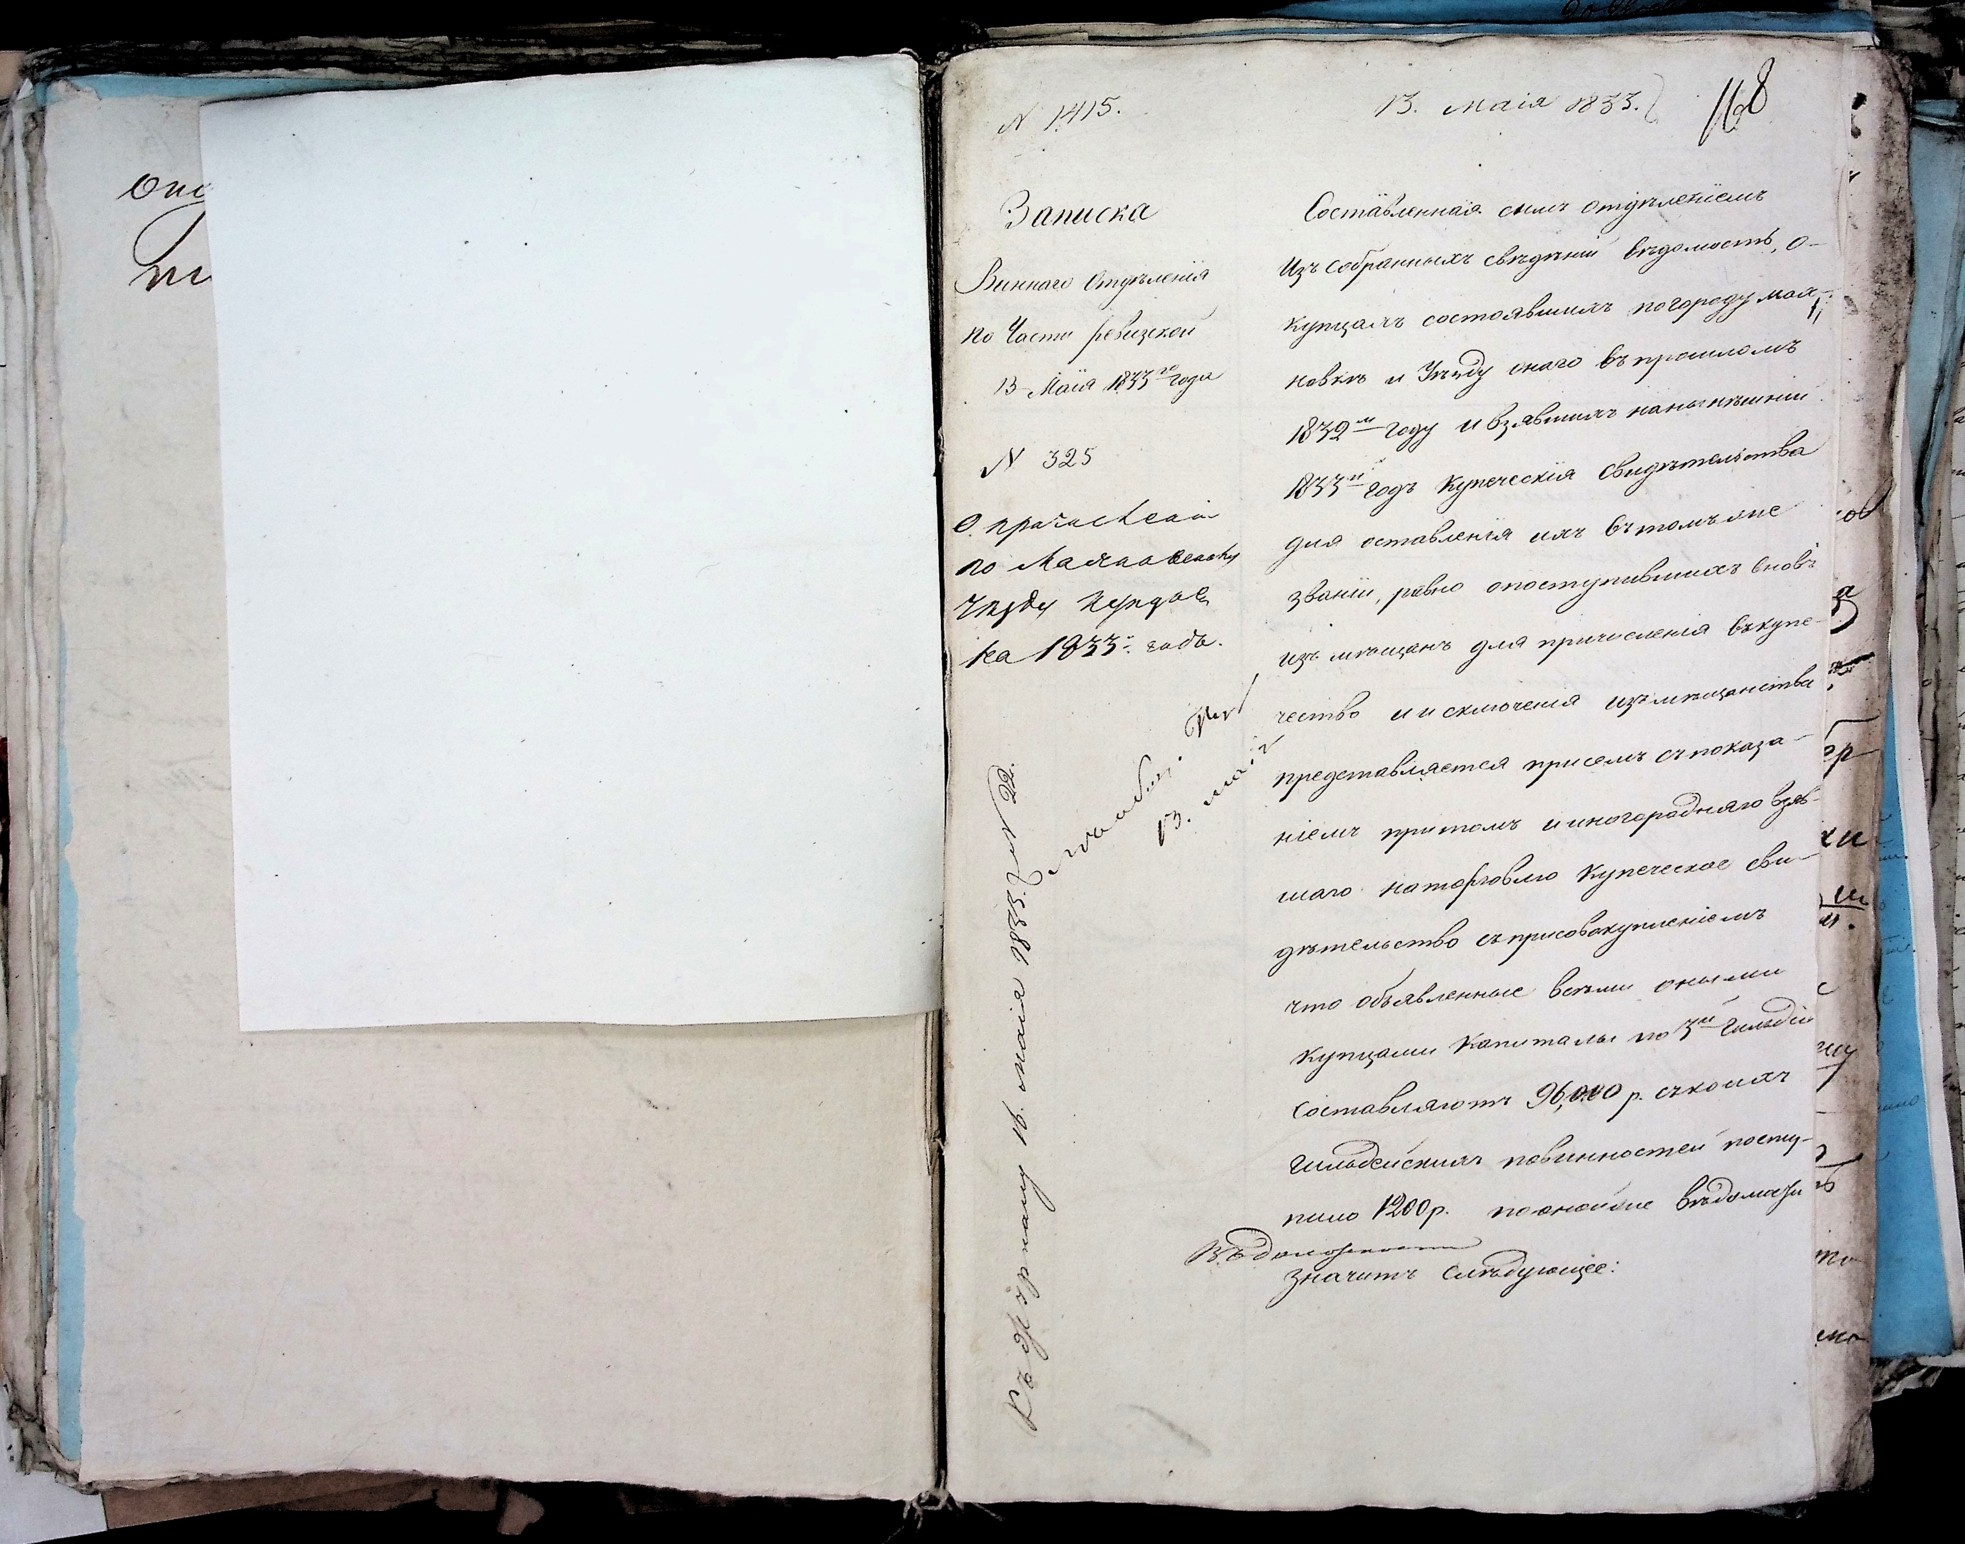 N 1415.
13. Маія 1833.
168
Записка
Виннаго Отдѣленія
по Части ревизской
13 Маія 1833го года
N 325
О причисленіи
по Маяковскому
Уѣзду Купцовъ
на 1833й годъ.
13. маія
Къ журналу 16. маія 1833. N 22.
Составленная симъ отдѣленіемъ
изъ собранныхъ свѣдѣній вѣдомость, о
купцахъ состоявшихъ по городу
и Уѣзду онаго въ прошломъ
1832м году и взявшихъ на нынѣшній
1833й годъ Купеческія Свидѣтельства
для оставленія ихъ въ томъ же
званіи, равно о поступившихъ вновь
изъ мѣщанъ для причисленія въ купе-
чество и исключенія изъ мѣщанства
представляется при семъ съ показа-
ніемъ при томъ и иногородняго взяв-
шаго на торговлю Купеческое сви-
дѣтельство съ присовокупленіемъ
что объявленные всѣми оными
купцами Капиталы по 3й гильдіи
составляютъ 96,000 р. съ коихъ
гильдейскихъ повинностей посту-
пило 1200 р. по оной же вѣдомости
значитъ слѣдующее: